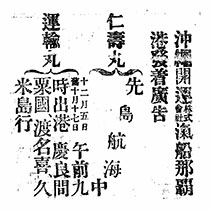 沖縄開運株式会社汽船那覇
港発着廣告
仁壽丸 先島航海中
運輸丸 十二月五日
舊十月十七日 午前九
時出港 慶良間
粟國、渡名喜、久
米島行